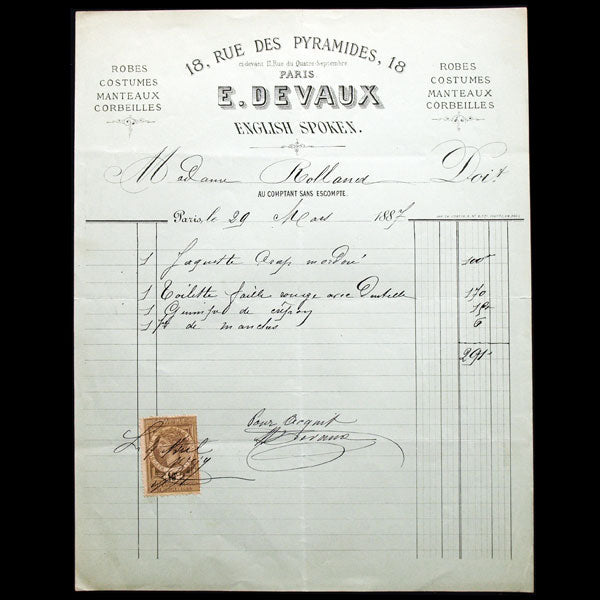 18, RUE DES PYRAMIDES, 18
ci-devant 17, Rue du Quatre-Septembre
PARIS
E. DEVAUX
ENGLISH SPOKEN.
ROBES
COSTUMES
MANTEAUX
CORBEILLES
ROBES
COSTUMES
MANTEAUX
CORBEILLES
Madame Rolland Doit
AU COMPTANT SANS ESCOMPTE
Paris, le 29 Mars 1887
1 Jaquette drap mordoré 100
1 Toilette faille rouge avec Dentelle 170
1 Guimpe de crépon 15
1 Pre de manches 6
291
Pour acquit
E Devaux